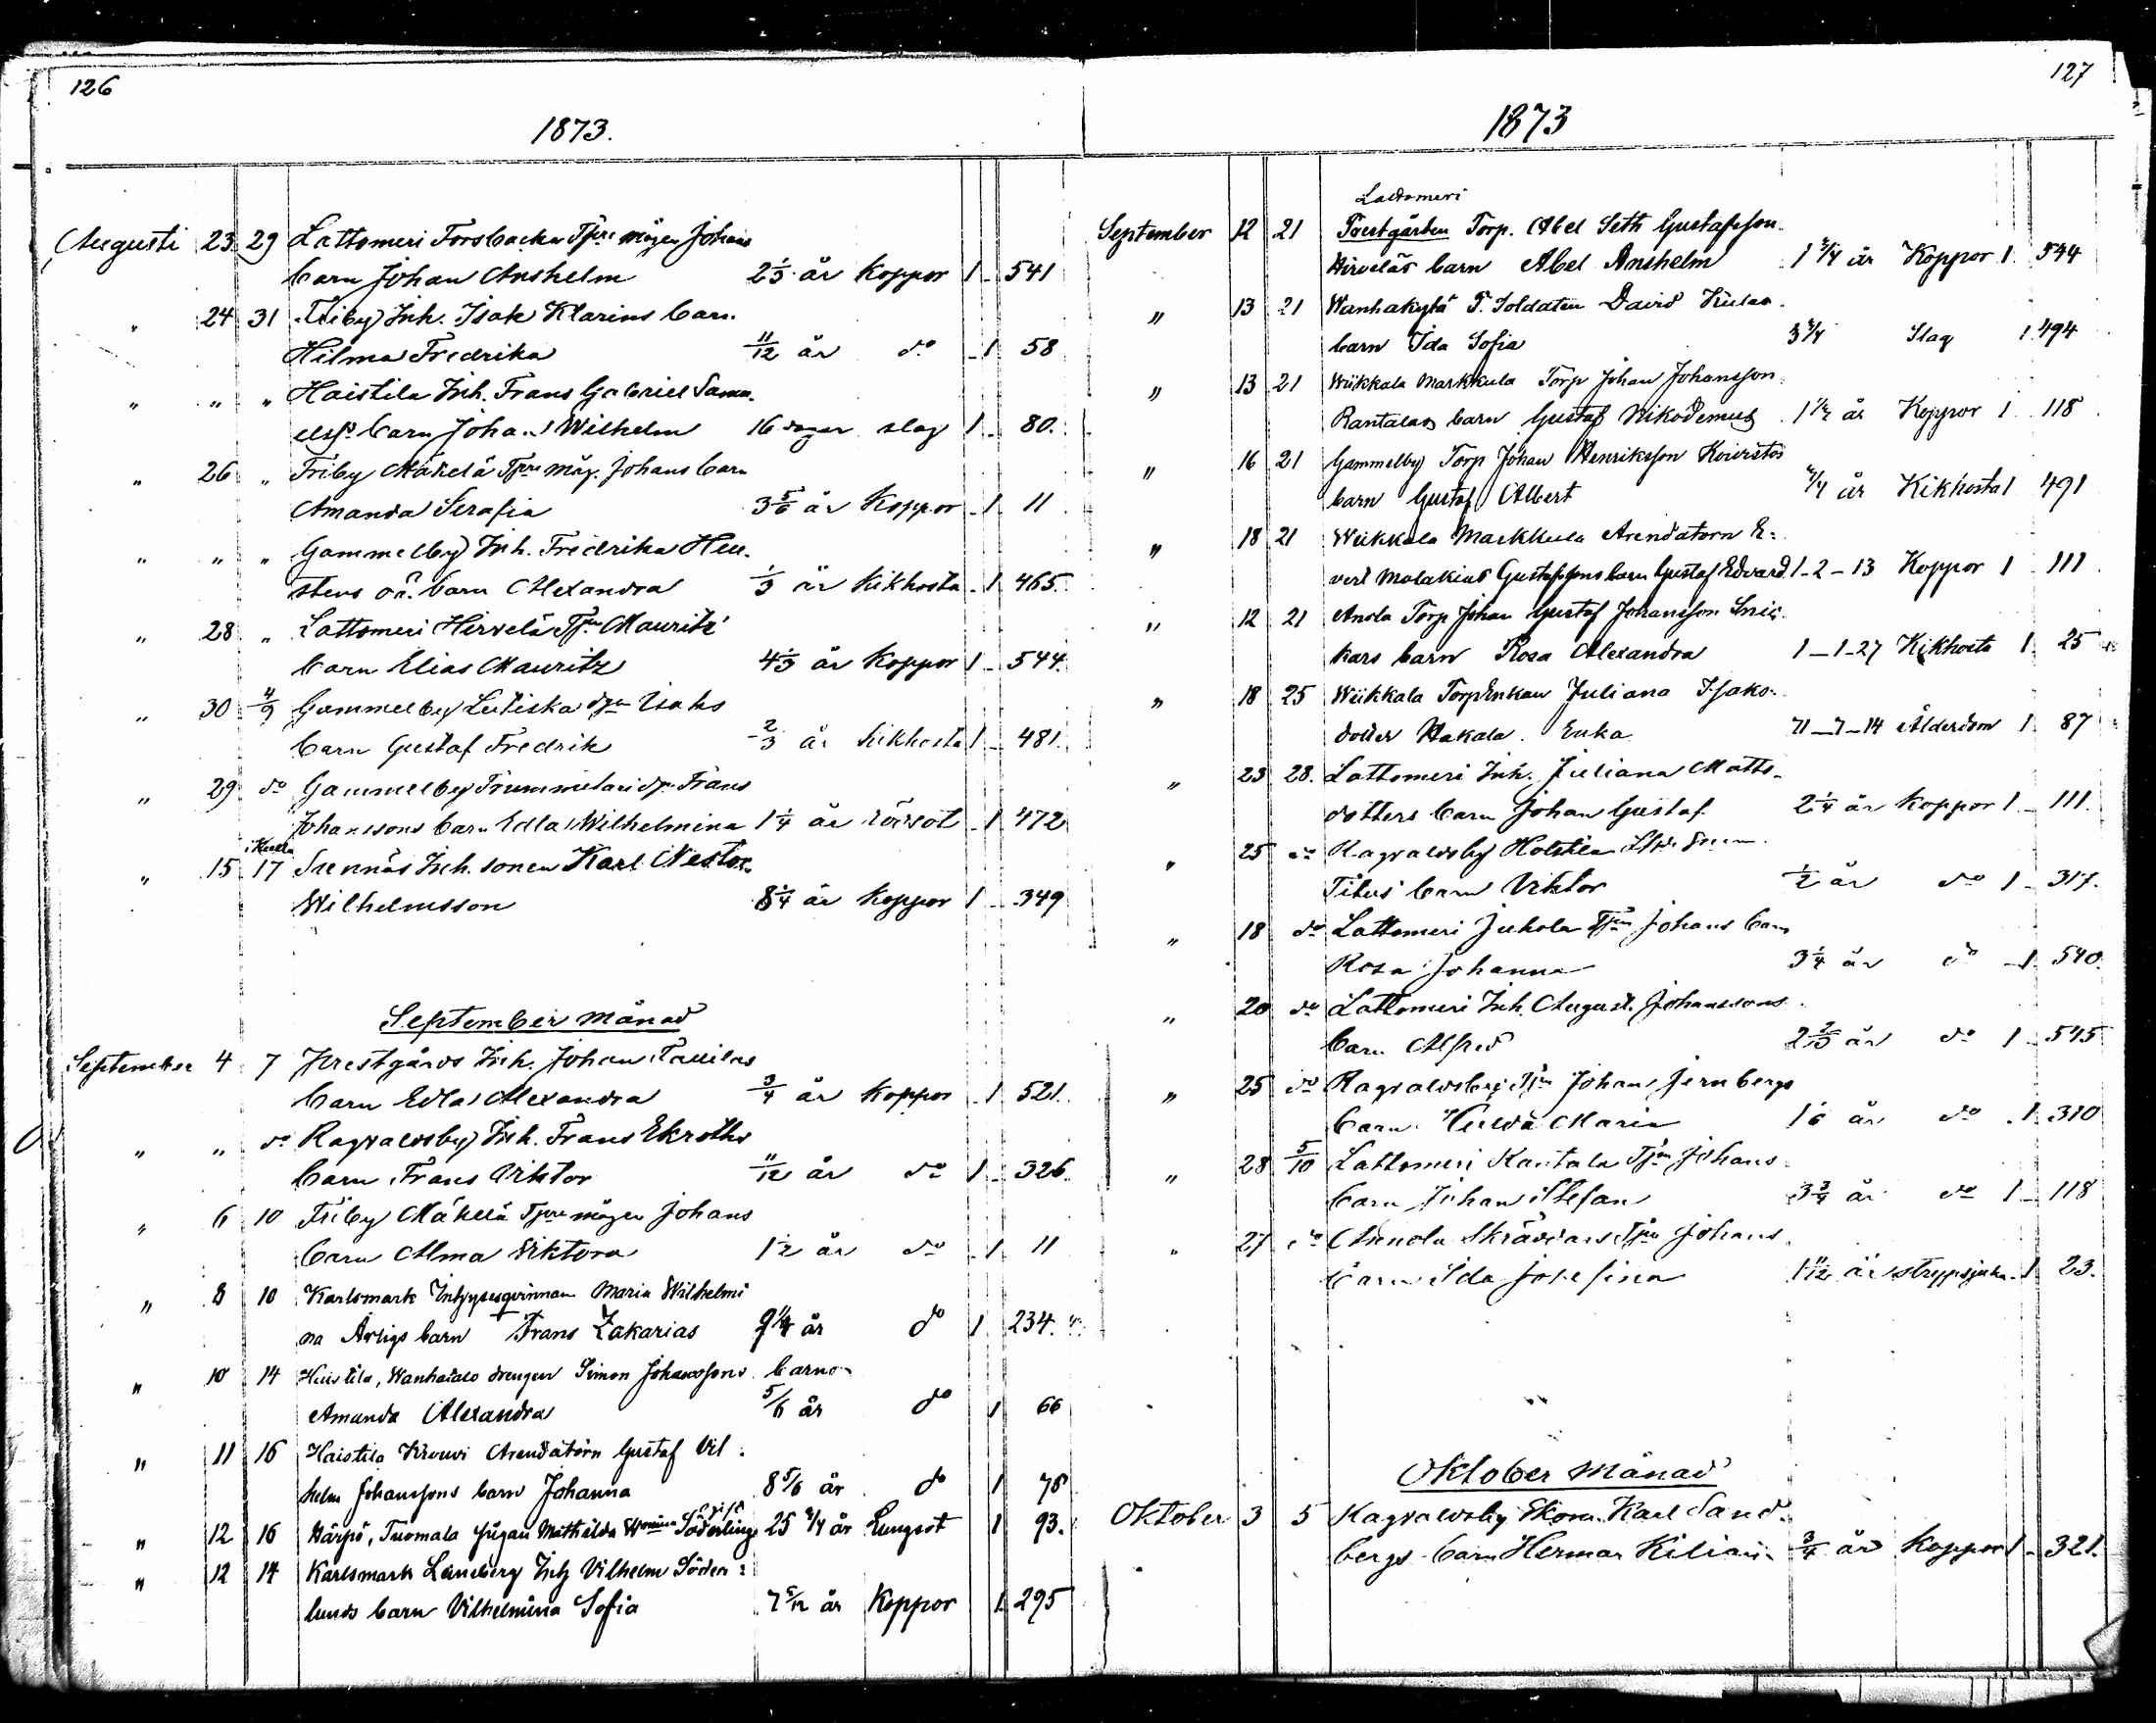 126
1873.
Augusti 23 29 Lattomeri Torsbacka Tjre mågen Johans
barn Johan Anshelm 2 1/3 år Koppor 1 541
" 24 31 Friby Inh. Isak Klarins barn
Hilma Fredrika 11/12 år do 1 58
" " " Haistila Inh. Frans Gabriel Samu-
elss. barn Johan Wilhelm 16 dagar slag 1 80.
" 26 " Friby Mäkelä Tjre måg. Johans barn
Amanda Serafia 3 5/6 år Koppor 1 11
" " " Gammelby Inh. Fredrika Hell-
stens oä. barn Alexandra 1/3 år Kikhosta 1 465.
" 28 " Lattomeri Hirvelä Mauritz
barn Elias Mauritz 4 1/3 år Koppor 1 544.
" 30 4/9 Gammelby Isaks
barn Gustaf Fredrik 2/3 år Kikhosta 1 481.
" 29 do Gammelby Frans
Johanssons barn Edla Wilhelmina 1 1/4 år rödsot 1 472
" 15 17 Inh. sonen Karl Nestor
Wilhelmsson 8 1/4 år Koppor 1 349
September månad
September 4 7 Prestgårds Inh. Johan
barn Edla Alexandra 3/4 år Koppor 1 521.
" " do Ragvaldsby Inh. Frans Ekroths
barn Frans Viktor 11/12 år do 1 326.
" 6 10 Friby Mäkelä Tjre mågen Johans
barn Alma Viktora 1 1/2 år do 1 11
" 8 10 Karlsmark Inhysesqvinnan Maria Wilhelmi
na Ärligs barn Frans Zakarias 9 1/4 år do 1 234.
" 10 14 Haistila, Wanhatalo drengen Simon Johanssons barn
Amanda Alexandra 5/6 år do 1 66
" 11 16 Haistila Krouvi Arendatorn Gustaf Vil-
helm Johanssons barn Johanna 8 5/6 år do 1 78
" 12 16 Härpö, Tuomala Pigan Mathilda Söderling 25 3/4 år Lungsot 1 93.
" 12 14 Karlsmark Inh Vilhelm Söder-
lunds barn Vilhelmina Sofia 7 5/12 år Koppor 1 295
127
1873
Lattomeri
September 12 21 Prestgården Torp. Abel Seth Gustafsson
Hirveläs barn Abel Anshelm 1 3/4 år Koppor 1 544
" 13 21 Wanhakylä Soldaten David
barn Ida Sofia 3 3/4 Slag 1 494
" 13 21 Wiikkala Markkula Torp Johan Johansson
Rantalas barn Gustaf Nikodemus 1 1/2 år Koppor 1 118
" 16 21 Gammelby Torp Johan Henriksson Koivistos
barn Gustaf Albert 3/4 år Kikhosta 1 491
" 18 21 Wiikkala Markkula Arendatorn E-
vert Malakias Gustafssons barn Gustaf Edvard 1-2-13 Koppor 1 111
" 12 21 Anola Torp Johan Gustaf Johansson Snic-
kars barn Rosa Alexandra 1-1-27 Kikhosta 1 25
" 18 25 Wiikkala Torp Enkan Juliana Isaks-
dotter Hakala. Enka 71-7-14 Ålderdom 1 87
" 23 28. Lattomeri Inh. Juliana Matts-
dotters barn Johan Gustaf 2 1/4 år Koppor 1 111.
" 25 do Ragvaldsby
Titus barn Viktor 1/2 år do 1 317.
" 18 do Lattomeri Juhola Johans barn
Rosa Johanna 3 1/4 år do 1 540.
" 20 do Lattomeri Inh. August Johanssons
barn Alfred 2 2/3 år do 1 545
" 25 do Ragvaldsby Johan Jernbergs
barn Hulda Maria 1 1/6 år do 1 310
" 28 5/10 Lattomeri Rantala Johans
barn Johan Stefan 3 3/4 år do 1 118
" 27 do Annola Skräddars Johans
barn Ida Josefina 1 11/12 år strypsjuka 1 23.
Oktober månad
Oktober 3 5 Ragvaldsby Karl Sand-
bergs barn Herman Kilian 3/4 år Koppor 1 321.